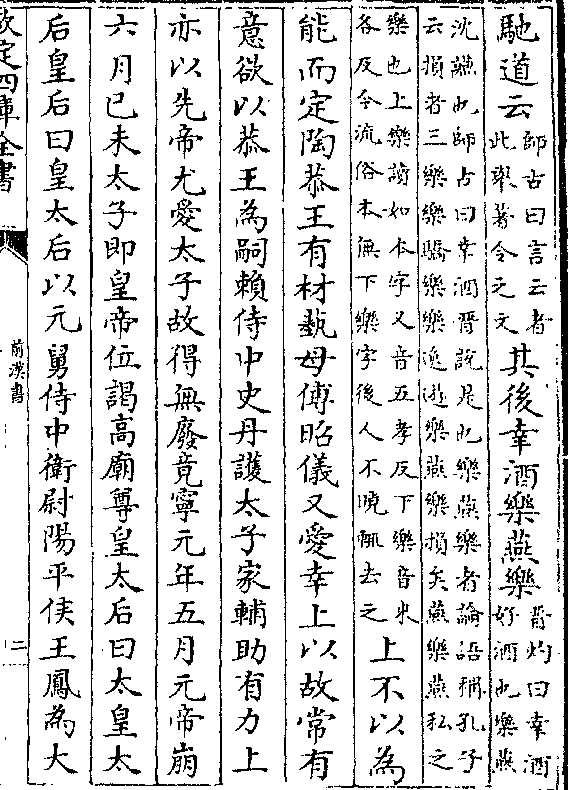 馳道云師古曰言云者此舉著令之文其後幸酒樂燕樂晋灼曰幸酒好酒也樂燕
沈讌也師古曰幸酒晋説是也樂燕樂者論語稱孔子云損者三樂樂驕樂樂逸遊樂燕樂損矣燕樂燕私之
樂也上樂讀如本字又音五孝反下樂音來各反今流俗本無下樂字後人不曉輒去之上不以為
能而定陶恭王有材藝母傅昭儀又愛幸上以故常有
意欲以恭王為嗣賴侍中史丹護太子家輔助有力上
亦以先帝尤愛太子故得無廢竟寧元年五月元帝崩
六月已未太子即皇帝位謁高廟尊皇太后曰太皇太
后皇后曰皇太后以元舅侍中衛尉陽平侯王鳳為大
欽定四庫全書
前漢書
二